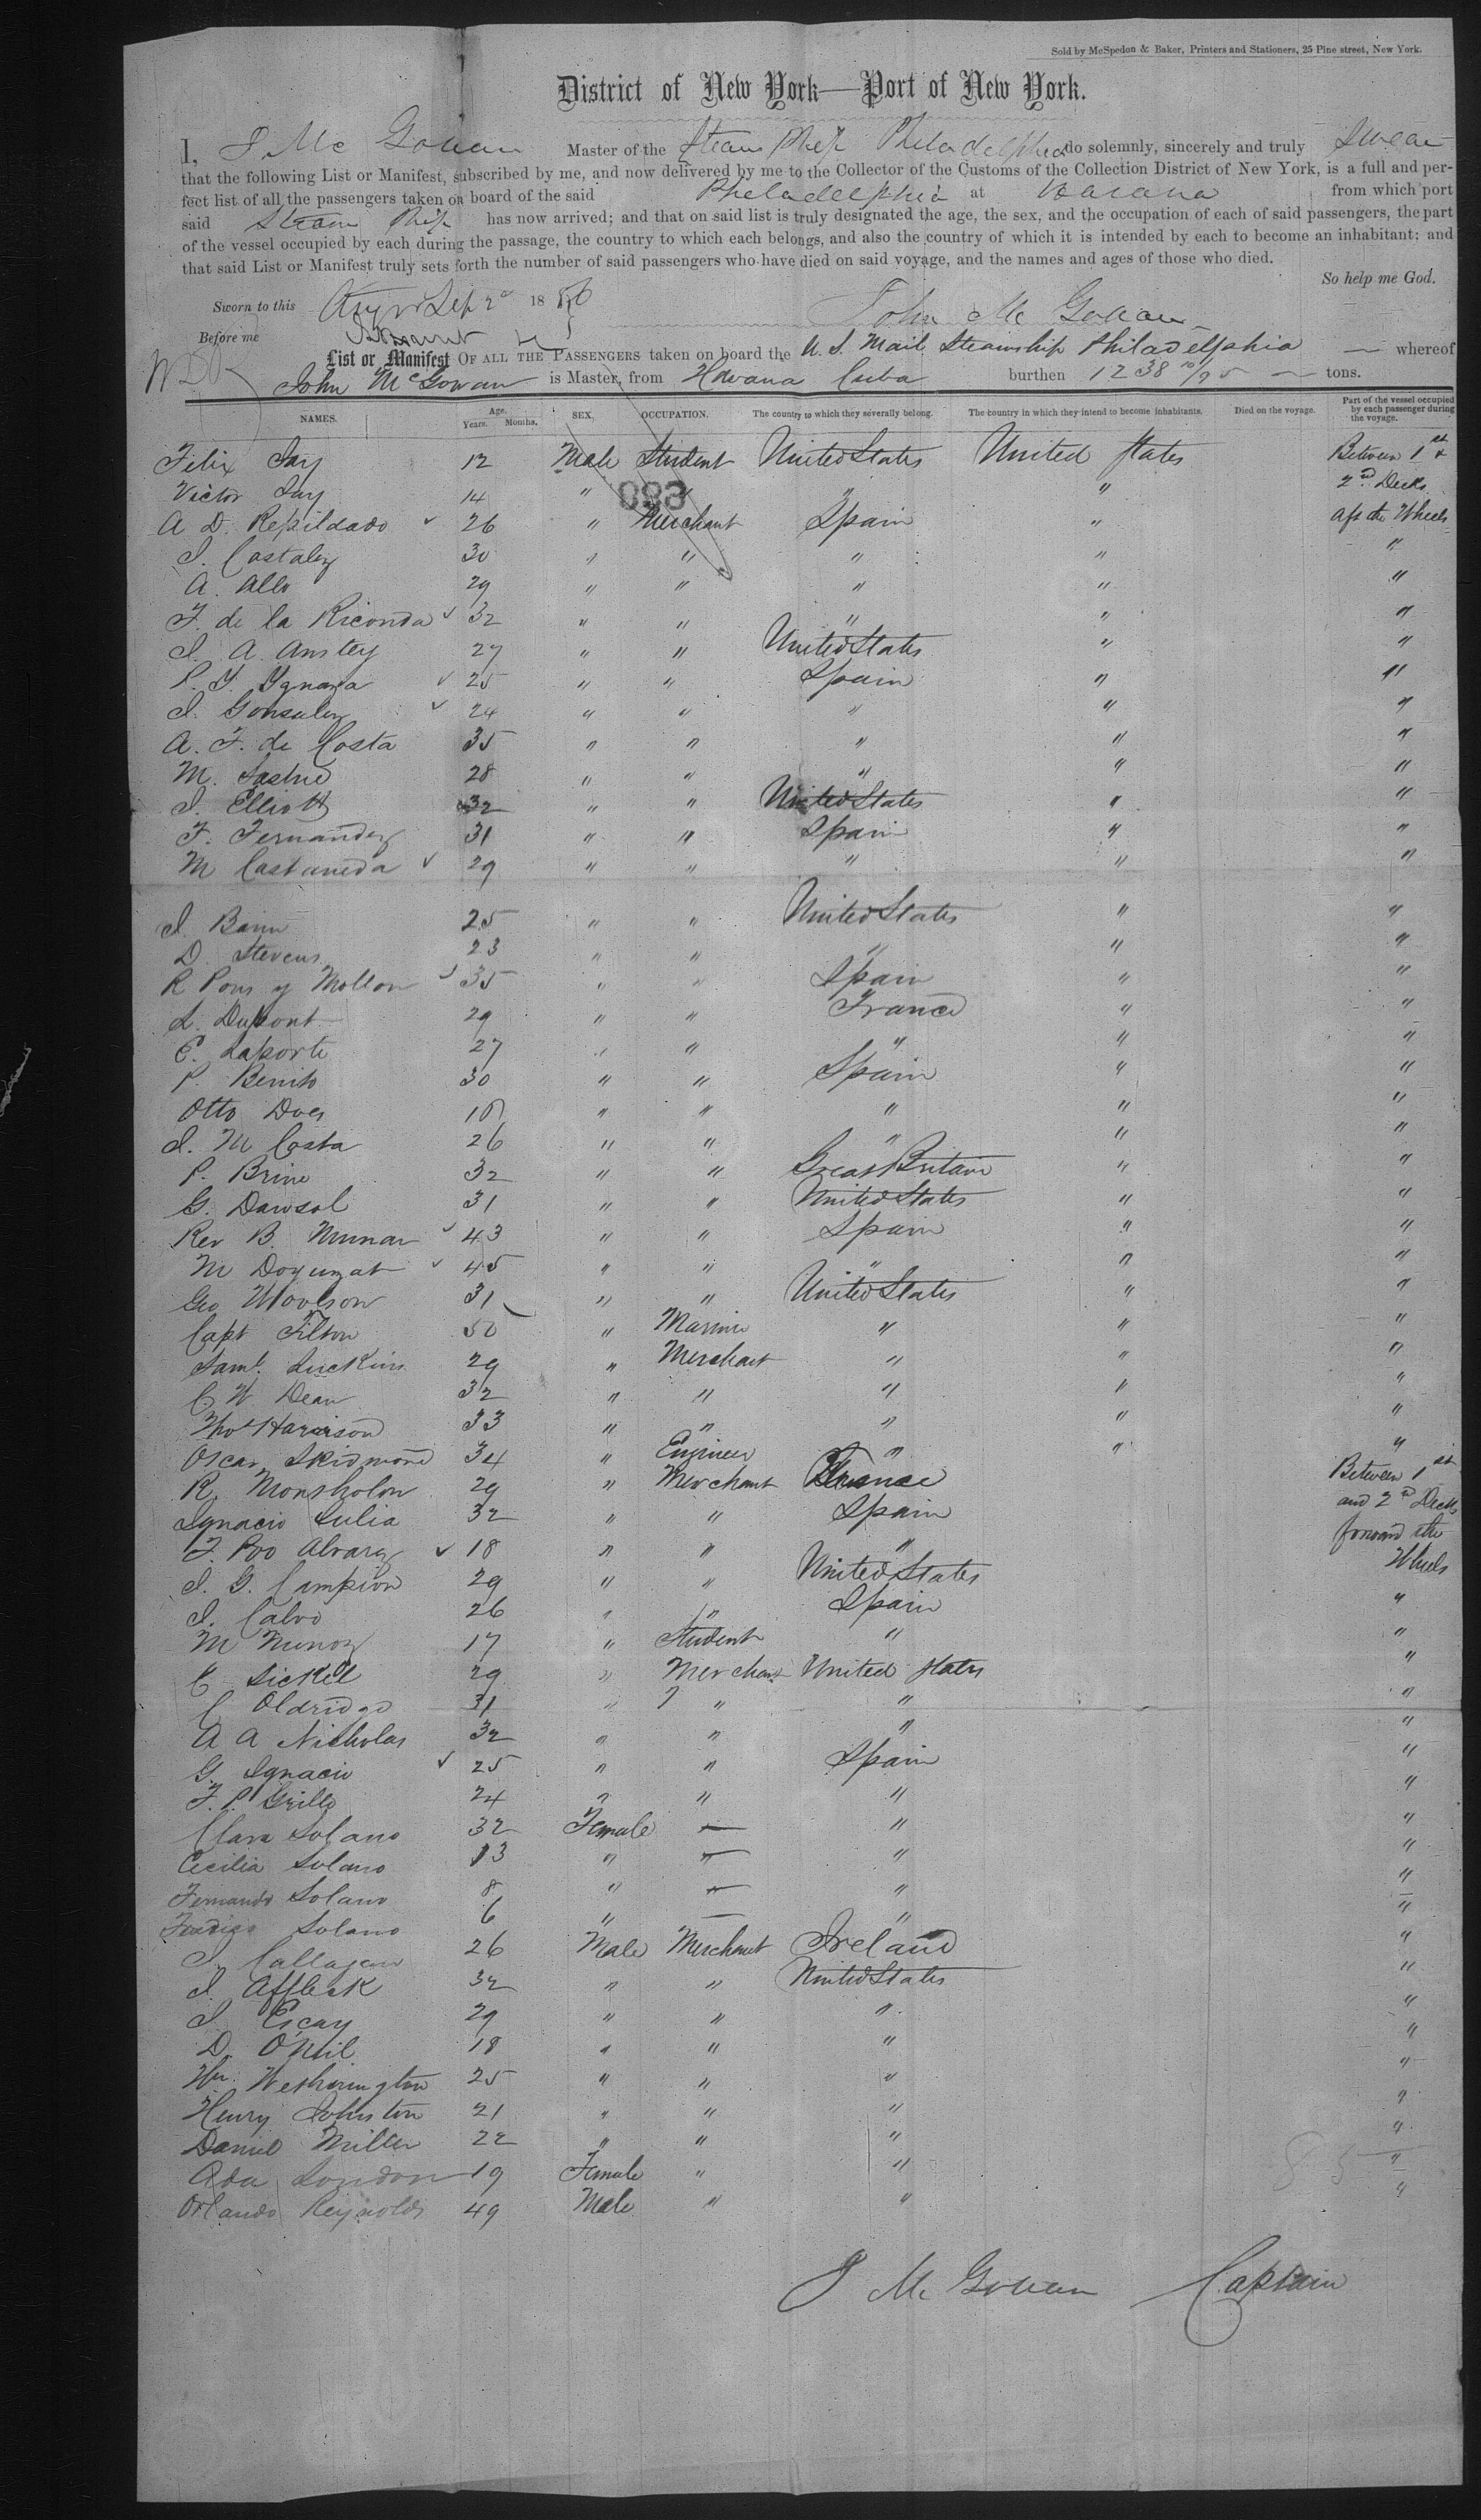 Sold by McSpedon & Baker, Printers and Stationers, 25 Pine street, New York.
District of New York—Port of New York.
I, J Mc Gowan Master of the Steam Ship Philadelphia do solemnly, sincerely and truly swear
that the following List or Manifest, subscribed by me, and now delivered by me to the Collector of the Customs of the Collection District of New York, is a full and per-
fect list of all the passengers taken on board of the said Philadelphia at Havana from which port
said Steam Ship has now arrived; and that on said list is truly designated the age, the sex, and the occupation of each of said passengers, the part
of the vessel occupied by each during the passage, the country to which each belongs, and also the country of which it is intended by each to become an inhabitant; and
that said List or Manifest truly sets forth the number of said passengers who have died on said voyage, and the names and ages of those who died.
So help me God.
Sworn to this Sep 2d 1856 John Mc Gowan
Before me
List or Manifest OF ALL THE PASSENGERS taken on board the U. S. Mail Steamship Philadelphia — whereof
John McGowan is Master, from Havana Cuba burthen 1238 — tons.
NAMES. Age. Years. Months. SEX. OCCUPATION. The country to which they severally belong. The country in which they intend to become inhabitants. Died on the voyage. Part of the vessel occupied by each passenger during the voyage.
Felix Jay 12 Male Student United States United States Between 1st &
Victor Jay 14 " " " " 2nd Decks
093
A D. Repildado 26 " Merchant Spain " Aft the Wheels
30 " " " " "
A. Allo 29 " " " " "
F. de la Riconda 32 " " " " "
J. A. Anstey 27 " " United States " "
P. Y. Ygnaga 25 " " Spain " "
J. Gonzalez 24 " " " " "
A. F. de Costa 35 " " " " "
M. Sastre 28 " " " " "
J. Elliott 32 " " United States " "
F. Fernandez 31 " " Spain " "
M Castaneda 29 " " " " "
J. Bann 25 " " United States " "
D. Stevens 23 " " " " "
R Pons y Mollon 35 " " Spain " "
L. Dupont 29 " " France " "
E. Laporte 27 " " " " "
P. Benito 30 " " Spain " "
Otto Does " " " " "
J. M Costa 26 " " " " "
P. Brine 32 " " Great Britain " "
G. Dawsol 31 " " United States " "
Rev B. Munar 43 " " Spain " "
M 45 " " " " "
Geo Woolson 31 " " United States " "
Capt Tilton 50 " Marine " " "
Saml. Luckins 29 " Merchant " " "
C W Dean 32 " " " " "
Thos Harrison 33 " " " " "
Oscar Skidmore 34 " Engineer " " "
R. Monsholon 29 " Merchant France Between 1st
Ignacio Julia 32 " " Spain and 2nd Decks
F. Poo Alvarez 18 " " " forward the
J. G. Campion 29 " " United States Wheels
J. Calvo 26 " " Spain "
M Nunoz 17 " Student " "
C Sickel 29 " Merchant United States "
C Oldridge 31 " " " "
A A Nicholas 32 " " " "
G. Ignacio 25 " " Spain "
F. P. Grillo 24 " " " "
Clara Solano 32 Female — " "
Cecilia Solano 13 " — " "
Fernando Solano 8 " — " "
Solano 6 " — " "
J. Callagan 26 Male Merchant Ireland "
J. Affleck 32 " " United States "
J. Escay 29 " " " "
D. O'Neil 18 " " " "
Wm. Wethrington 25 " " " "
Henry Johnston 21 " " " "
Daniel Miller 22 " " " "
Ada London 19 Female " " "
Orlando Reynolds 49 Male " " "
J Mc Gowan Captain